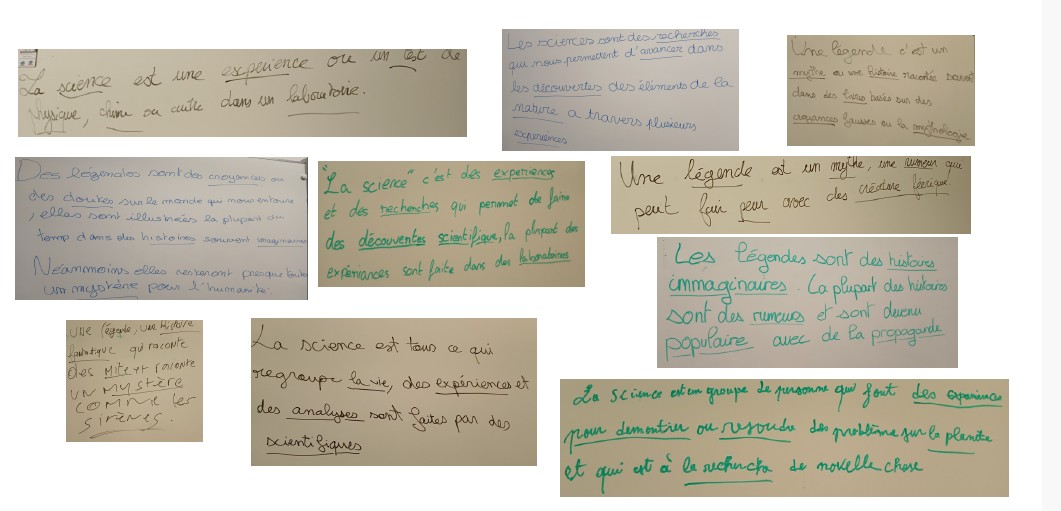 La science est une experience ou un test de
physique, chimi ou autre dans un laboratoire.
Les sciences sont des recherches
qui nous permettent d'avancer dans
les découvertes des élements de la
nature a travers plusieurs
experiences
Une légende c'est un
mythe ou une histoire racontée
dans des livres basés sur des
croyances fausses ou la mythologie
Des légendes sont des croyances ou
des doutes sur le monde qui nous entoure
, elles sont illustrées la plupart du
temp dans des histoires souvent imaginaires
Néammoins elles resteront presque toute
un mystère pour l'humanité.
"La science" c'est des experiences
et des recherches qui permet de faire
des découvertes scientifique, la plupart des
expériances sont faite dans des laboratoires
Une légende est un mythe, une rumeur qui
peut fair peur avec des créature féerique.
Les légendes sont des histoires
immaginaires. La plupart des histoires
sont des rumeurs et sont devenu
populaire avec de la propagande
UNE légende, une histoire
fantatique qui raconte
Des MITE et raconte
UN MYSTÈRE
COMME les
SIRÈNES.
La science est tous ce qui
regroupe la vie, des expériences et
des analyses sont faites par des
scientifiques
La science est un groupe de personne qui font des experiences
pour demontrer ou resoudre des problème sur la planete
et qui est à la recherche de novelle chose